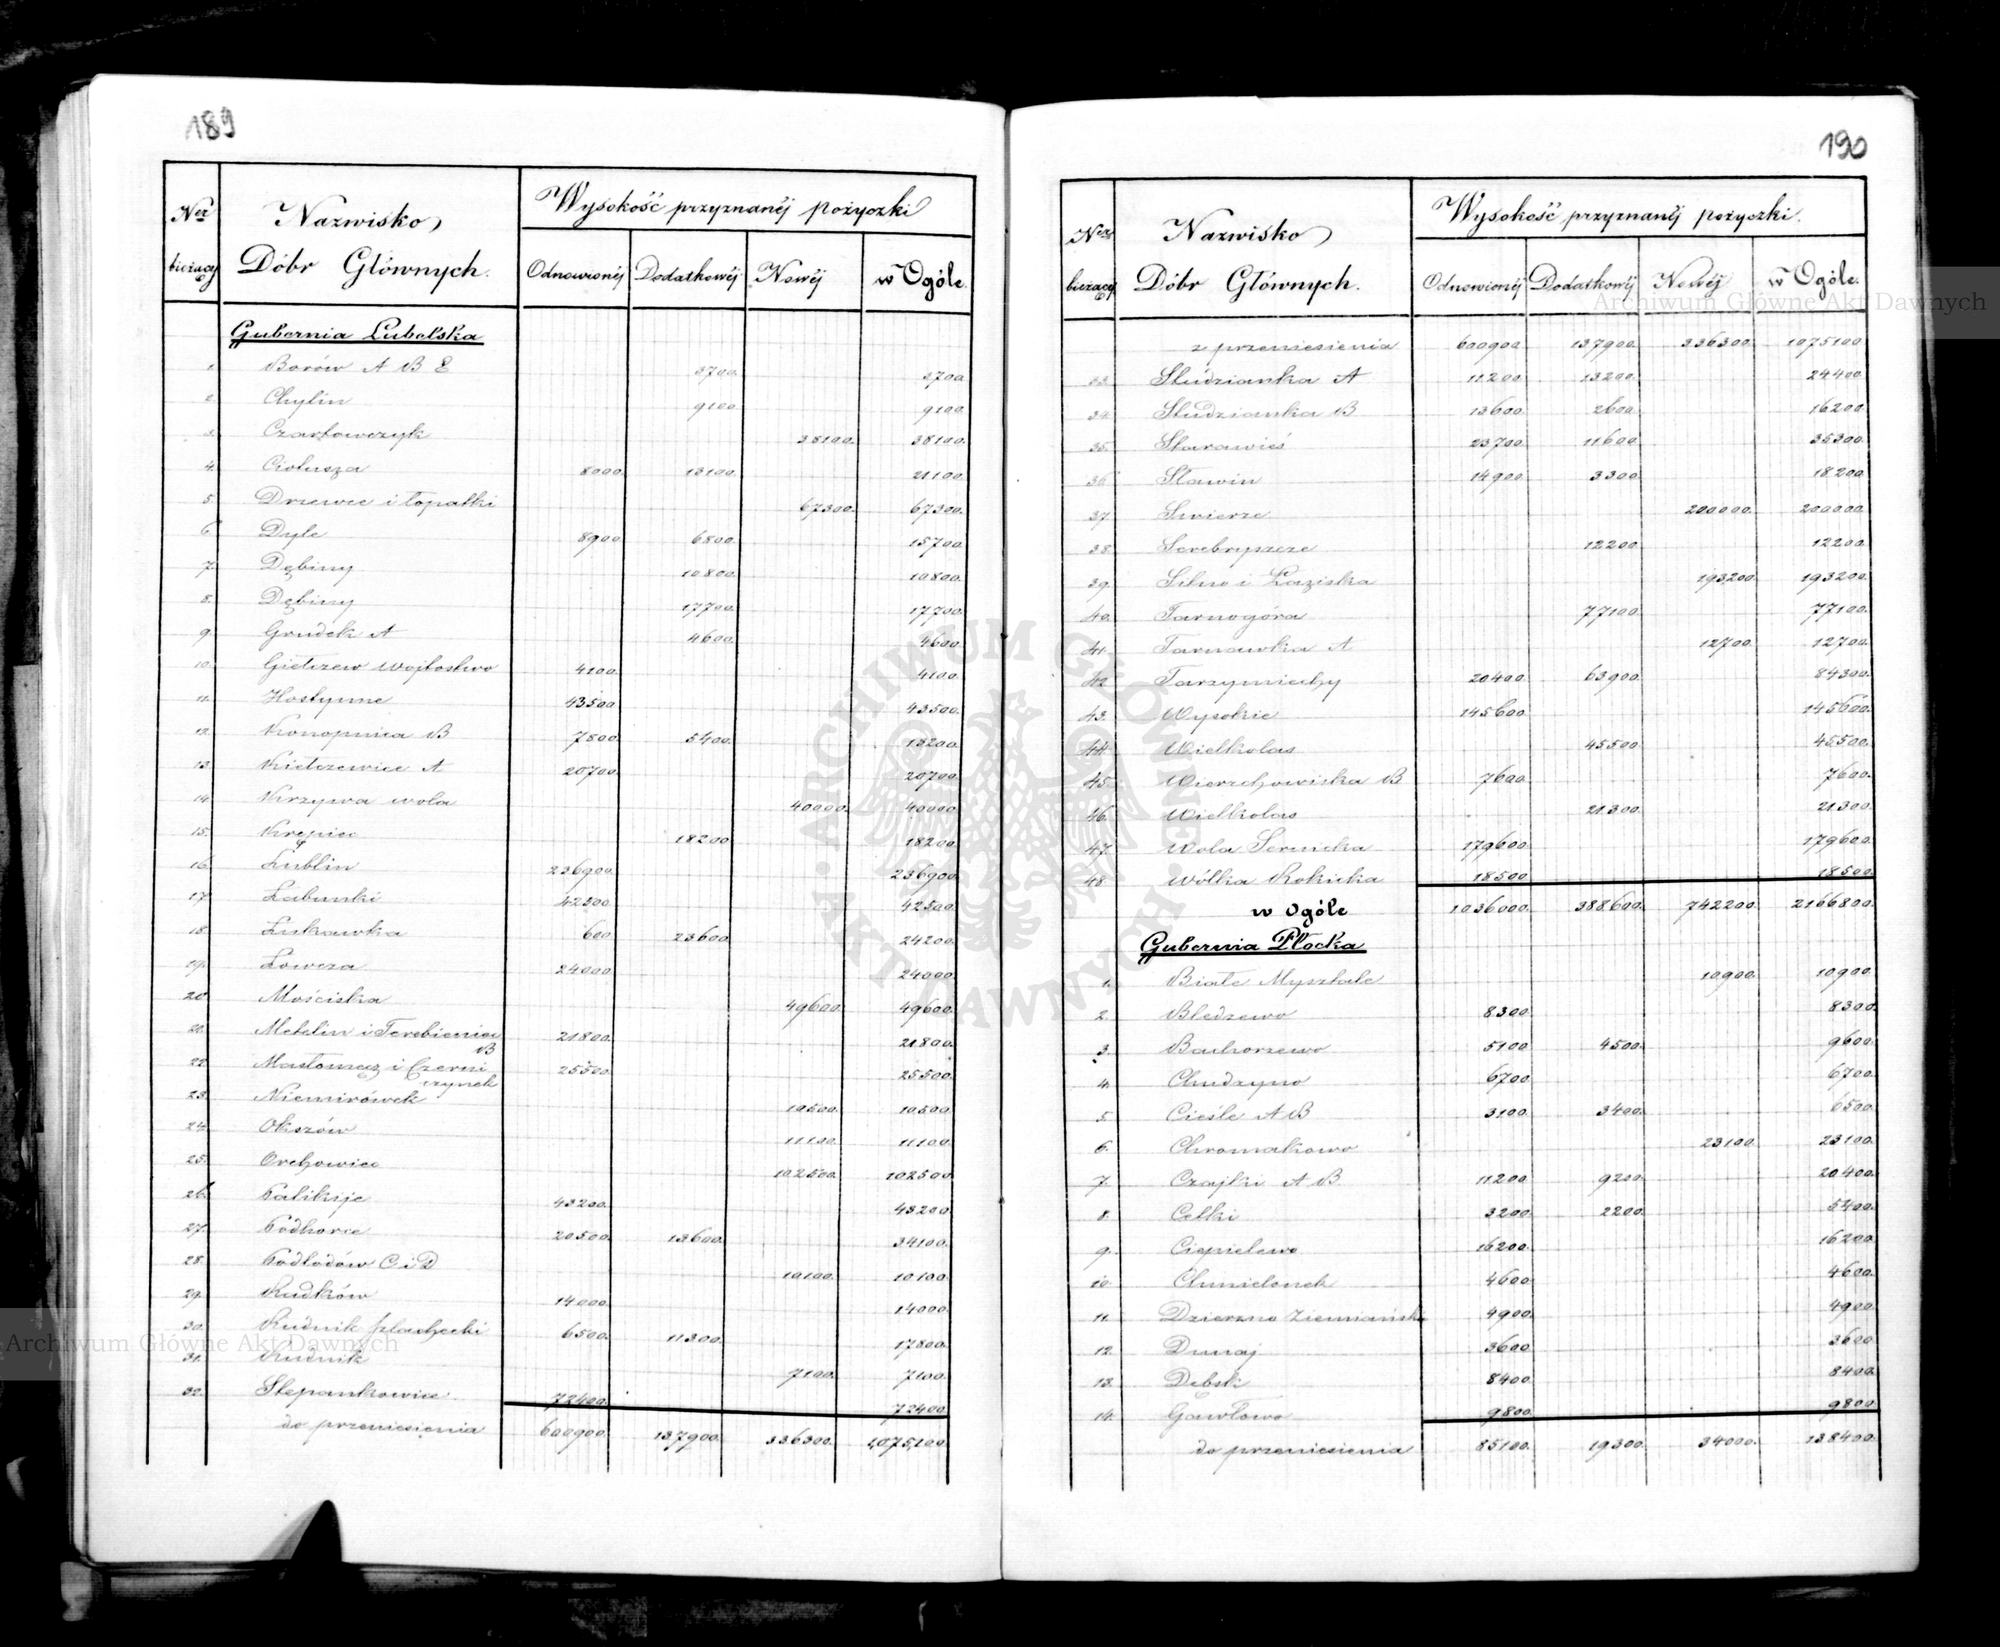 189
Ner bieżący Nazwisko Dóbr Głównych. Wysokość przyznanéj pożyczki
Odnowionéj Dodatkowéj Nowéj w Ogóle.
Gubernia Lubelska
1. Borów A B E 3700. 3700
2. Chylin 9100 9100.
3. Czartowczyk 38100. 38100.
4. Ciotusza 8000. 13100. 21100.
5. Drzewce i Łopatki 67300. 67300.
6. Dyle 8900. 6800. 15700.
7. Dębiny 10800. 10800.
8. Dębiny 17700. 17700.
9. Grudek A 4600. 4600.
10. Giełczew Wojtostwo 4100. 4100.
11. Hostynne 43500. 43500.
12. Konopnica B 7800. 5400. 13200.
13. Kiełczewice A 20700. 20700.
14. Krzywa wola 40000. 40000.
15. Krępiec 18200 18200.
16. Lublin 236900. 236900.
17. Łabuńki 42500. 42500.
18. Łukawka 600 23600. 24200.
19. Łowcza 24000. 24000.
20. Mościska 49600. 49600.
21. Metelin i Terebieniec B 21800. 21800.
22. Masłomęcz i Czerniczynek 25500. 25500.
23. Niemirówek 10500. 10500.
24. Okszów 11100. 11100.
25. Orchowiec 102500. 102500
26. Palikije 43200. 43200.
27. Podhorce 20500. 13600. 34100.
28. Podlodów C i D 10100. 10100
29. Rudków 14000. 14000.
30. Rudnik szlachecki 6500. 11300. 17800.
31. Rudnik 7100. 7100.
32. Stepankowice 72400. 72400.
do przeniesienia 600900. 137900. 336300. 1,075,100.
190
Ner bieżący Nazwisko Dóbr Głównych. Wysokość przyznanéj pożyczki.
Odnowionéj Dodatkowéj Nowéj w Ogóle.
z przeniesienia 600900 137900. 336300. 1075100.
33. Studzianka A 11200. 13200. 24400.
34. Studzianka B 13600. 2600. 16200.
35. Starawieś 23700. 11600. 35300.
36. Sławin 14900. 3300. 18200.
37. Swierże 200000. 200000.
38. Serebryszcze 12200. 12200.
39. Silno i Łaziska 193200. 193200.
40. Tarnogóra 77100. 77100.
41. Tarnawka A 12700. 12700.
42. Tarzymiechy 20400. 63900. 84300.
43. Wysokie 145600. 145600.
44. Wielkolas 45500. 45500.
45. Wierzchowiska B 7600. 7600.
46. Wielkolas 21300. 21300
47. Wola Sernicka 179600. 179600.
48. Wólka Rokicka 18500. 18500.
w Ogóle 1036000. 388600. 742200. 2166800.
Gubernia Płocka
1. Białe Myszkale 10900. 10900.
2. Bledzewo 8300. 8300.
3. Bachorzewo 5100 4500. 9600.
4. Chudzyno 6700. 6700.
5. Cieśle A B 3100. 3400. 6500.
6. Chromakowo 23100. 23100.
7. Czajki A B 11200. 9200. 20400.
8. Cełki 3200. 2200. 5400.
9. Ciepielewo 16200. 16200.
10. Chmielonek 4600. 4600.
11. Dzierzno Ziemiańsk 4900. 4900.
12. Dunaj 3600. 3600.
13. Dębsk 8400. 8400.
14. Gawłowo 9800. 9800.
do przeniesienia 85100. 19300. 34000. 138400.
Archiwum Główne Akt Dawnych
Archiwum Główne Akt Dawnych
ARCHIWUM GŁÓWNE AKT DAWNYCH